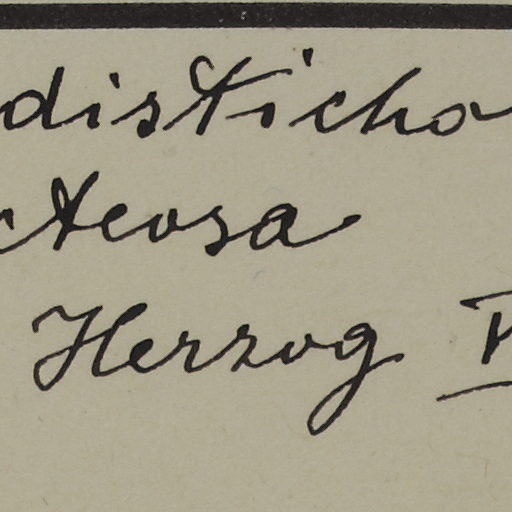 disticho
cteosa
Herzog P